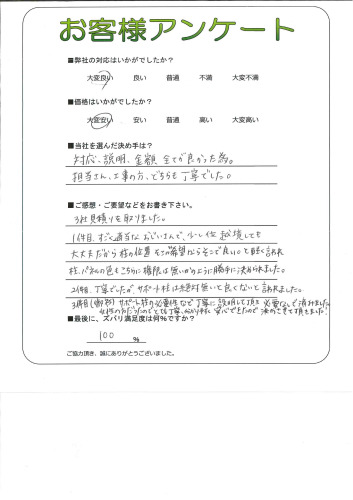 お客様アンケート
■弊社の対応はいかがでしたか?
大変良い 良い 普通 不満 大変不満
■価格はいかがでしたか?
大変安い 安い 普通 高い 大変高い
■当社を選んだ決め手は?
対応、説明、金額 全てが良かった為。
担当さん、工事の方、どちらも丁寧でした。
■ご感想・ご要望などをお書き下さい。
3社見積りを取りました。
1件目、すごく適当なおじいさんで、少し位越境しても
大丈夫だから 柱の位置もこの希望ならそこで良い。と軽く言われ
柱、パネルの色もこちらに権限は無いかのように勝手に決められました。
2件目、丁寧でしたが、サポート柱は絶対無いと良くないと言われました。
3件目(御社) サポート柱の必要性など丁寧に説明して頂き必要なしで済みました。
女性の方だったのでとても丁寧、
で安心できたので決めさせて頂きました!
■最後に、ズバリ満足度は何%ですか?
100 %
ご協力頂き、誠にありがとうございました。